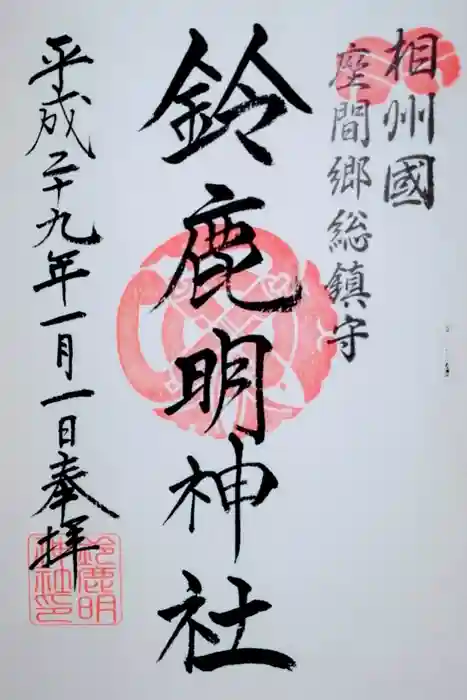 相州國
座間郷総鎮守
鈴鹿明神社
平成二十九年一月一日奉拝
鈴鹿明
神社印